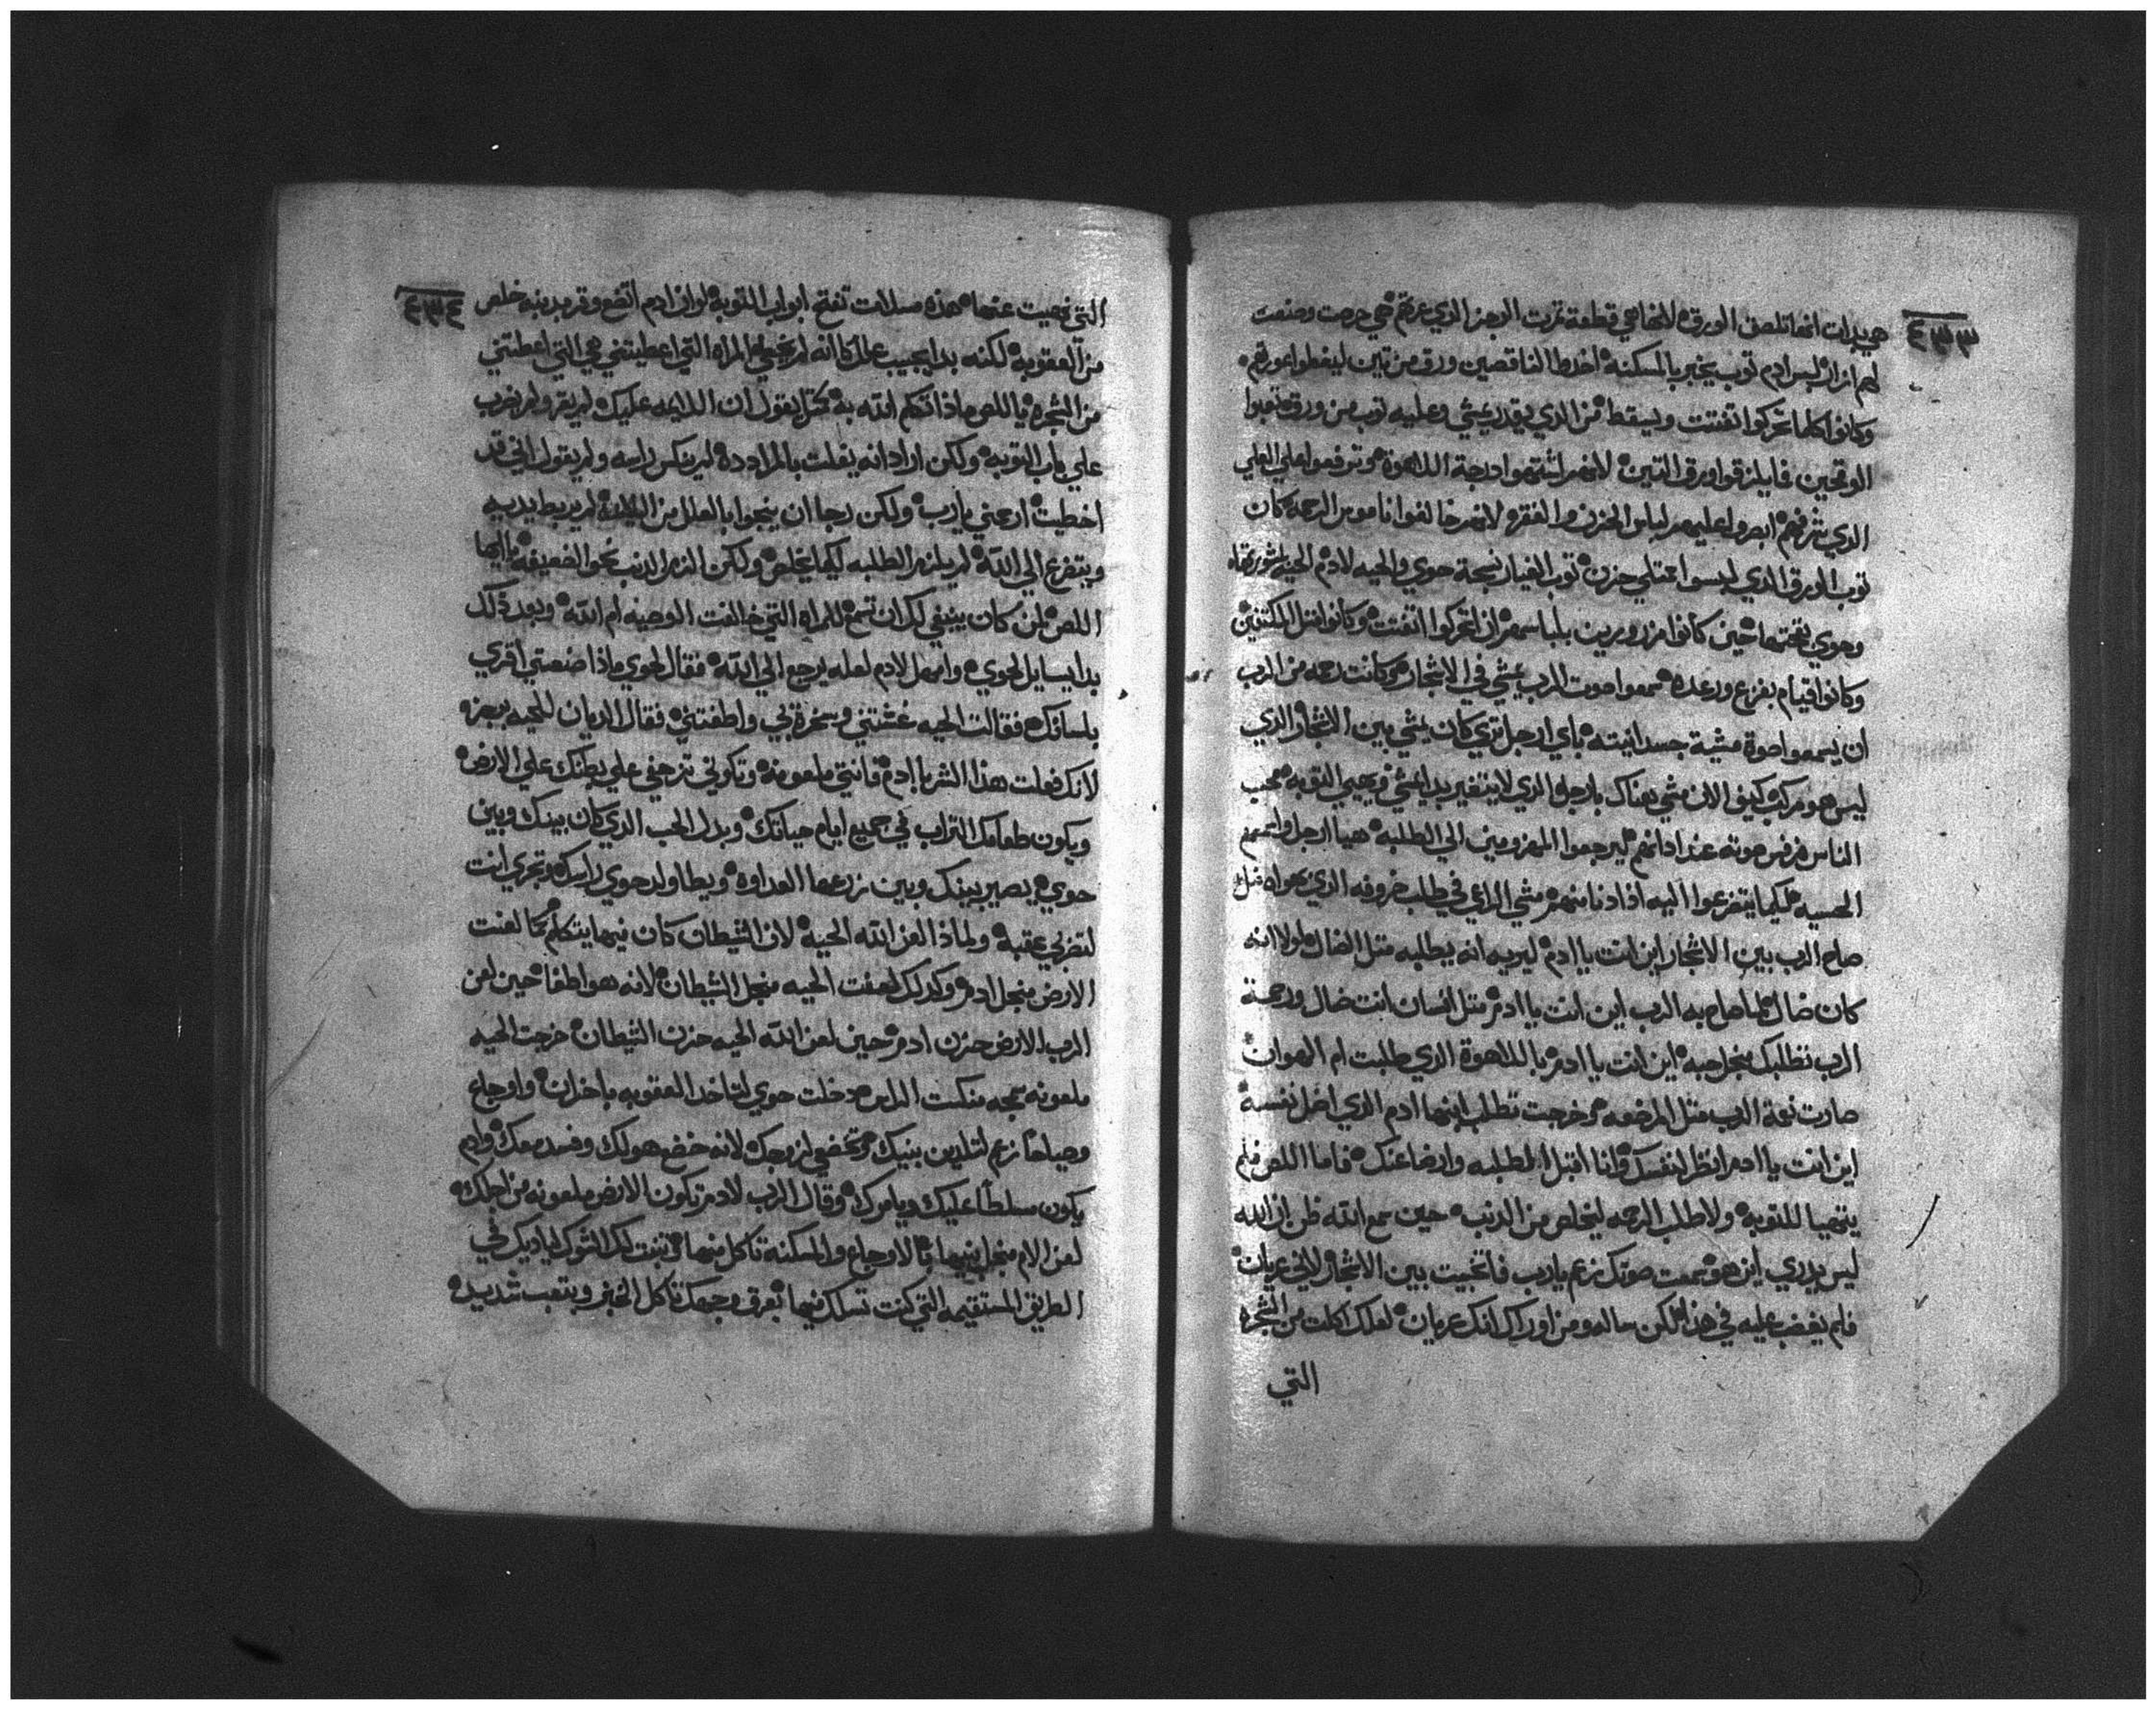 ٤٣٣
هي بدات انها تلصق الورقه لانها هي قطعة تمرت الوجز الذي عرتهم هي جرحت وصنعت
لهم ازار لبس ادم توب يخبر بالمسكنه اخدوا الناقصين ورق من تين ليغطوا عورتهم
وكانوا كلما تحركوا تفتتت ويسقط من الدي يقدر يمشي وعليه توب من ورقه
الوقحين فايلزقوا ورق التين لانهم اشتهوا درجة اللاهوة وترفعوا علي العلي
الدي شرفهم ابصروا عليهم لباس الحزن والفقر لانهم خالفوا ناموس الرحمه كان
توب الورق الدي لبسوا ممتلي حزن توب الغبار نسجة حوي والحيه لادم الحيه
وحوي حين كانوا مزدورين بلباسهم ان تحركوا اتفتت وكانوا متل المكتفين
وكانوا قيام بفزع ورعده سمعوا صوت الرب يمشي في الاشجار وكانت رحمه من الرب
ان يسمعوا صوة مشية جسدانيته باي ارجل تري كان يمشي بين الاشجار الدي
ليس هو مركب كيف الان مشي هناك بارجل الدي لا يتغير بدا يمشي ويعيي التوبه محب
الناس فرفس صوته عند ادانهم ليرجعوا المهزومين الي الطلبه هيا ارجل واسمهم
الحسيه لكيما يتفزعوا اليه اذا دنا منهم مشي الراعي في طلب خروفه الدي
صاح الرب بين الاشجار اين انت يا ادم ليريه انه يطلبه متل الضال لولا انه
كان ضال لما صاح به الرب اين انت يا ادم متل انسان انت ضال ورحمة
الرب تطلبك بنجل حبه اين انت يا ادم باللاهوة الدي طلبت ام الهوان
صارت نعمة الرب متل المرضعه وخرجت تطلب ابنها ادم الدي اضل نفسه
اين انت يا ادم انظر لنفسك وانا اقبل الطلبه وارضا عنك فاما اللص فلم
يتهيا للتوبه ولا طلب الرحمه ليخلص من الدنب حين سمع الله ظن ان الله
ليس يدري اين هو سمعت صوتك زعم يا رب فاتخبيت بين الاشجار لاني عريان
فلم يغضب عليه في هذا لكن ساله ومن اوراك انك عريان لعلك اكلت من الشجره
التي
٤٣٤
التي نهيت عنها بهذه مسلات تفتح ابواب التوبه لو ان ادم اتضع وقر بدينه خلص
من العقوبه لكنه بدا يجيب المراه التي اعطيتني هي التي اعطتني
من الشجره يا اللص ماذا اتكلم الله به يقول ان اللايمه عليك لم يقر ولم يضرب
علي باب التوبه ولكن اراد انه يغلت بالمرادده لم ينكس راسه ولم يقول اني قد
اخطيت ارحمني يا رب ولكن رجا ان ينجوا بالعلل من لم يربط يديه
ويتفزع الي الله لم يلزم الطلبه ليكما يتخلص ولكن الزم الدنب نحو الضعيفه يا ايها
اللص لمن كان ينبغي لك ان تسمع للمراه التي خالفت الوصيه ام الله وبعد ذلك
بدا يسايل لحوي وامهل لادم لعله يرجع الي الله فقال لحوي ماذا صنعتي اقري
بلسانك فقالت الحيه غشتني وسخرة بي واطغتني فقال الديان للحيه بزجزه
لانك فعلت هذا الشر بادم فانتي ملعونه وتكوني تزحفي علي بطنك علي الارض
ويكون طعامك التراب في جميع ايام حياتك وبدل الحب الدي كان بينك وبين
حوي يصير بينك وبين زرعها العداوه ويطا ولد حوي راسك وتجري انت
لتضربي عقبه ولماذا لعن الله الحيه لان الشيطان كان فيها يتكلم كما لعنت
الارض منجل ادم وكدلك لعنت الحيه منجل الشيطان لانه هو اطغا حين لعن
الرب الارض حزن ادم وحين لعن الله الحيه حزن الشيطان خرجت الحيه
ملعونه سمجه منكست الراس ودخلت حوي لتاخد العقوبه باحزان واوجاع
وصياحا زعم لتلدين بنيك وتخضعي لزوجك لانه خضع هو لك وفسد معك وادم
يكون مسلطا عليك ويامرك وقال الرب لادم تكون الارض ملعونه من اجلك
لعن الام منجل ابنها بالاوجاع والمسكنه تاكل منها وتنبت لك الشوك لياديك في
الطريق المستقيمه التي كنت تسلك فيها بعرق وجهك تاكل الخبز وبتعب شديده